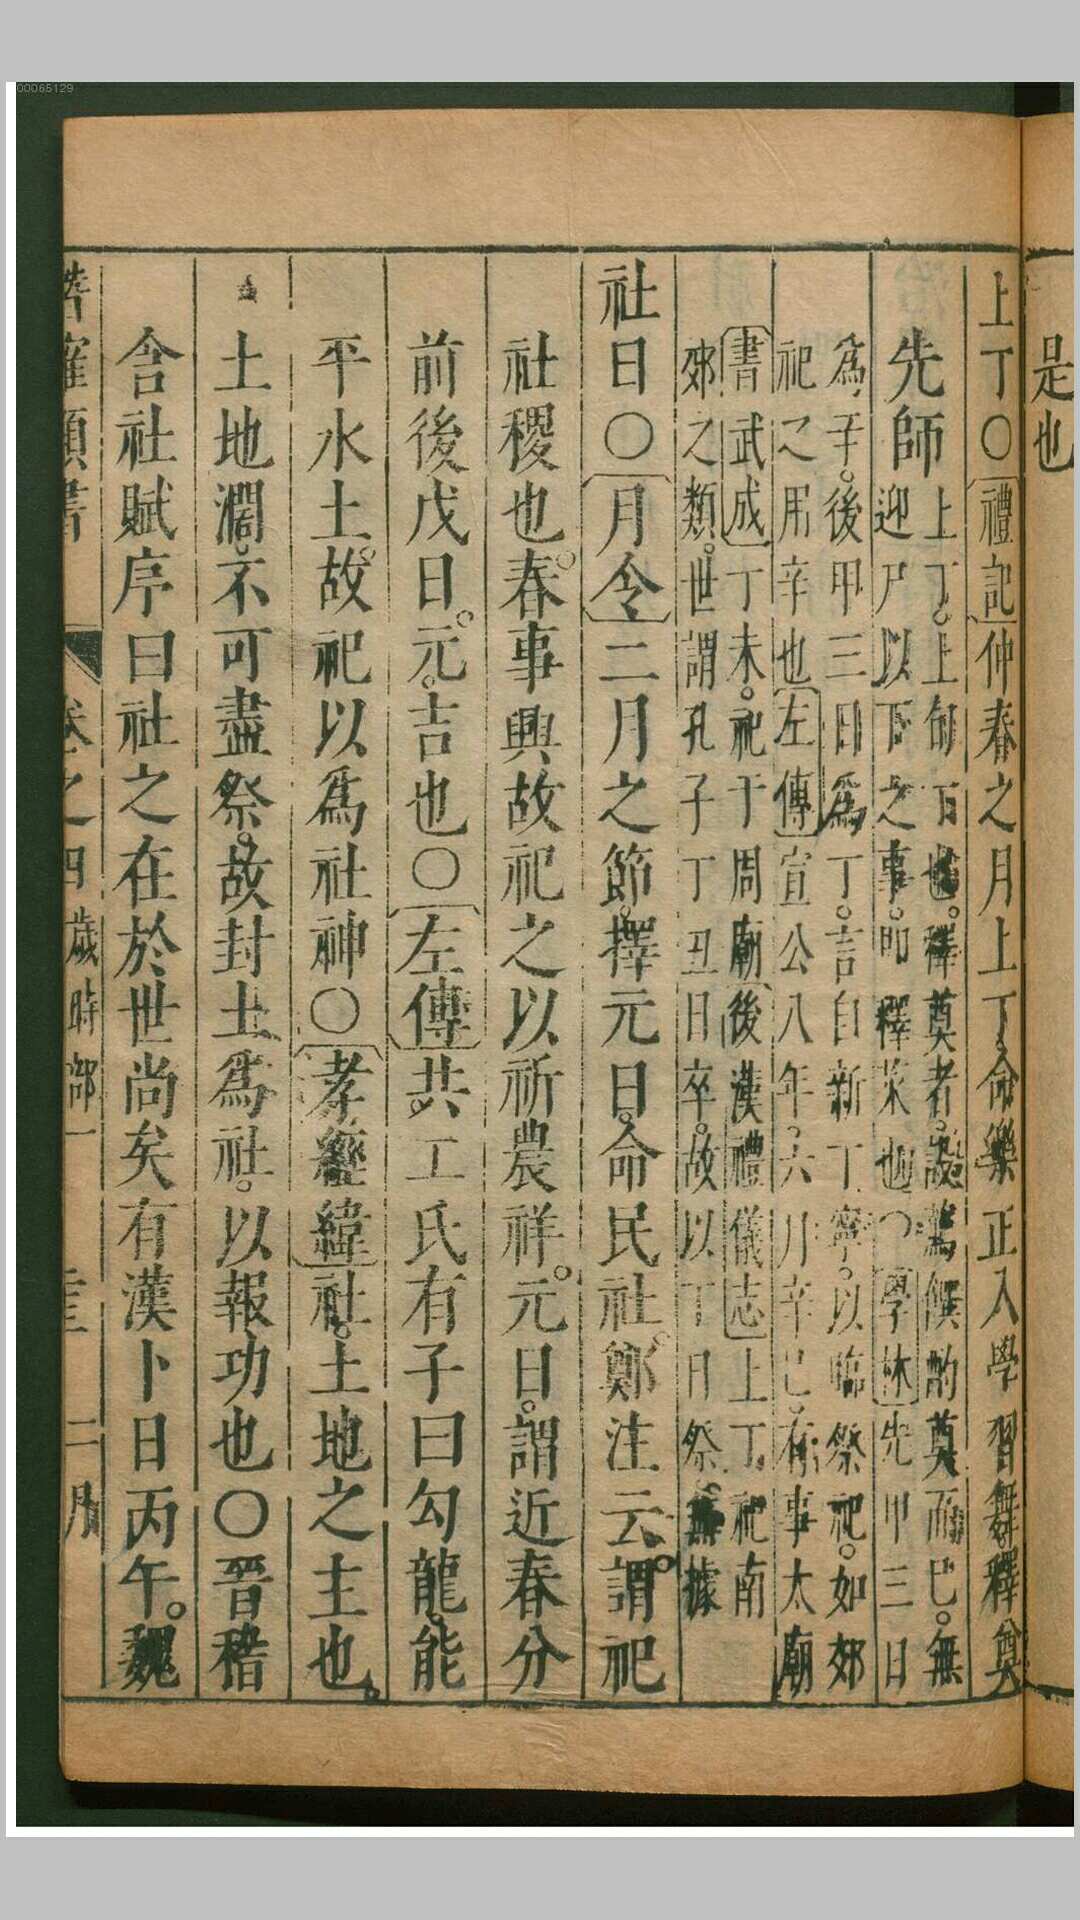 00065129
是也
上丁○禮記仲春之月上丁命樂正入學習舞釋奠
先師
上丁。上旬丁也。釋奠者。設薦饌酌奠而已。無
迎尸以下之事。即釋菜也○學林先甲三日
為辛。後甲三日為丁。言自新丁寧。以臨祭祀。如郊
祀之用辛也左傳宣公八年。六月辛巳。有事太廟
書武成丁未。祀于周廟後漢禮儀志上丁祀南
郊之類。世謂孔子丁丑日卒。故以丁日祭。無據
社日○月令二月之節。擇元日。命民社。鄭注云。謂祀
社稷也。春事興故祀之以祈農祥。元日。謂近春分
前後戊日。元。吉也○左傳共工氏有子曰勾龍。能
平水土。故祀以為社神○孝經緯社。土地之主也。
土地濶。不可盡祭。故封土為社。以報功也○晉稽
含社賦序曰社之在於世尚矣有漢卜日丙午。魏
類書 卷之四 歲時部一 二月